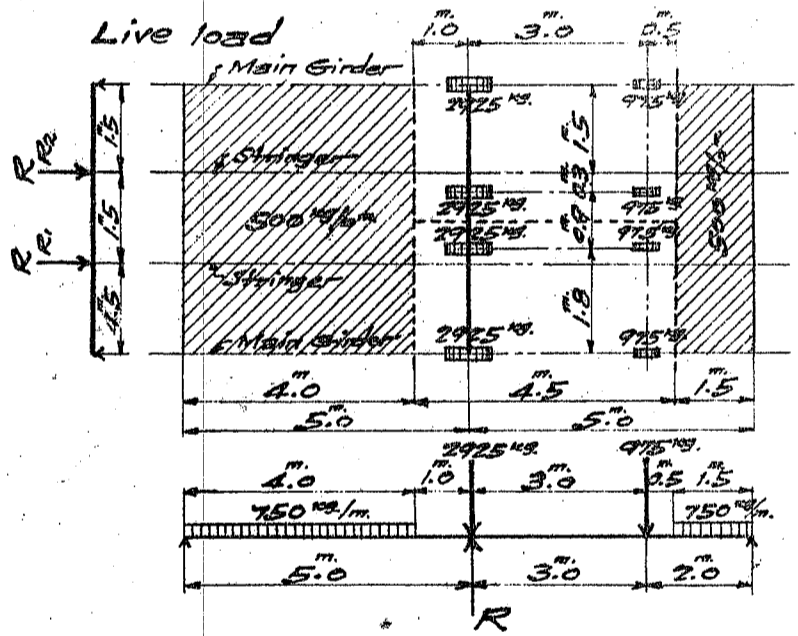 Live load
1.0 m. 3.0 m. 0.5 m.
Main Girder
2925 kg. 975 kg.
1.5 m. 1.5 m.
R R2
Stringer
0.3 m.
500 kg/□m
2925 kg. 975 kg.
1.5 m. 0.9 m. 500 kg/□m
2925 kg. 975 kg.
R R1
Stringer
4.5 m. 1.8 m.
Main Girder 2925 kg. 975 kg.
4.0 m. 4.5 m. 1.5 m.
5.0 m. 5.0 m.
2925 kg. 975 kg.
4.0 m. 1.0 m. 3.0 m. 0.5 m. 1.5 m.
750 kg/m. 750 kg/m.
5.0 m. 3.0 m. 2.0 m.
R